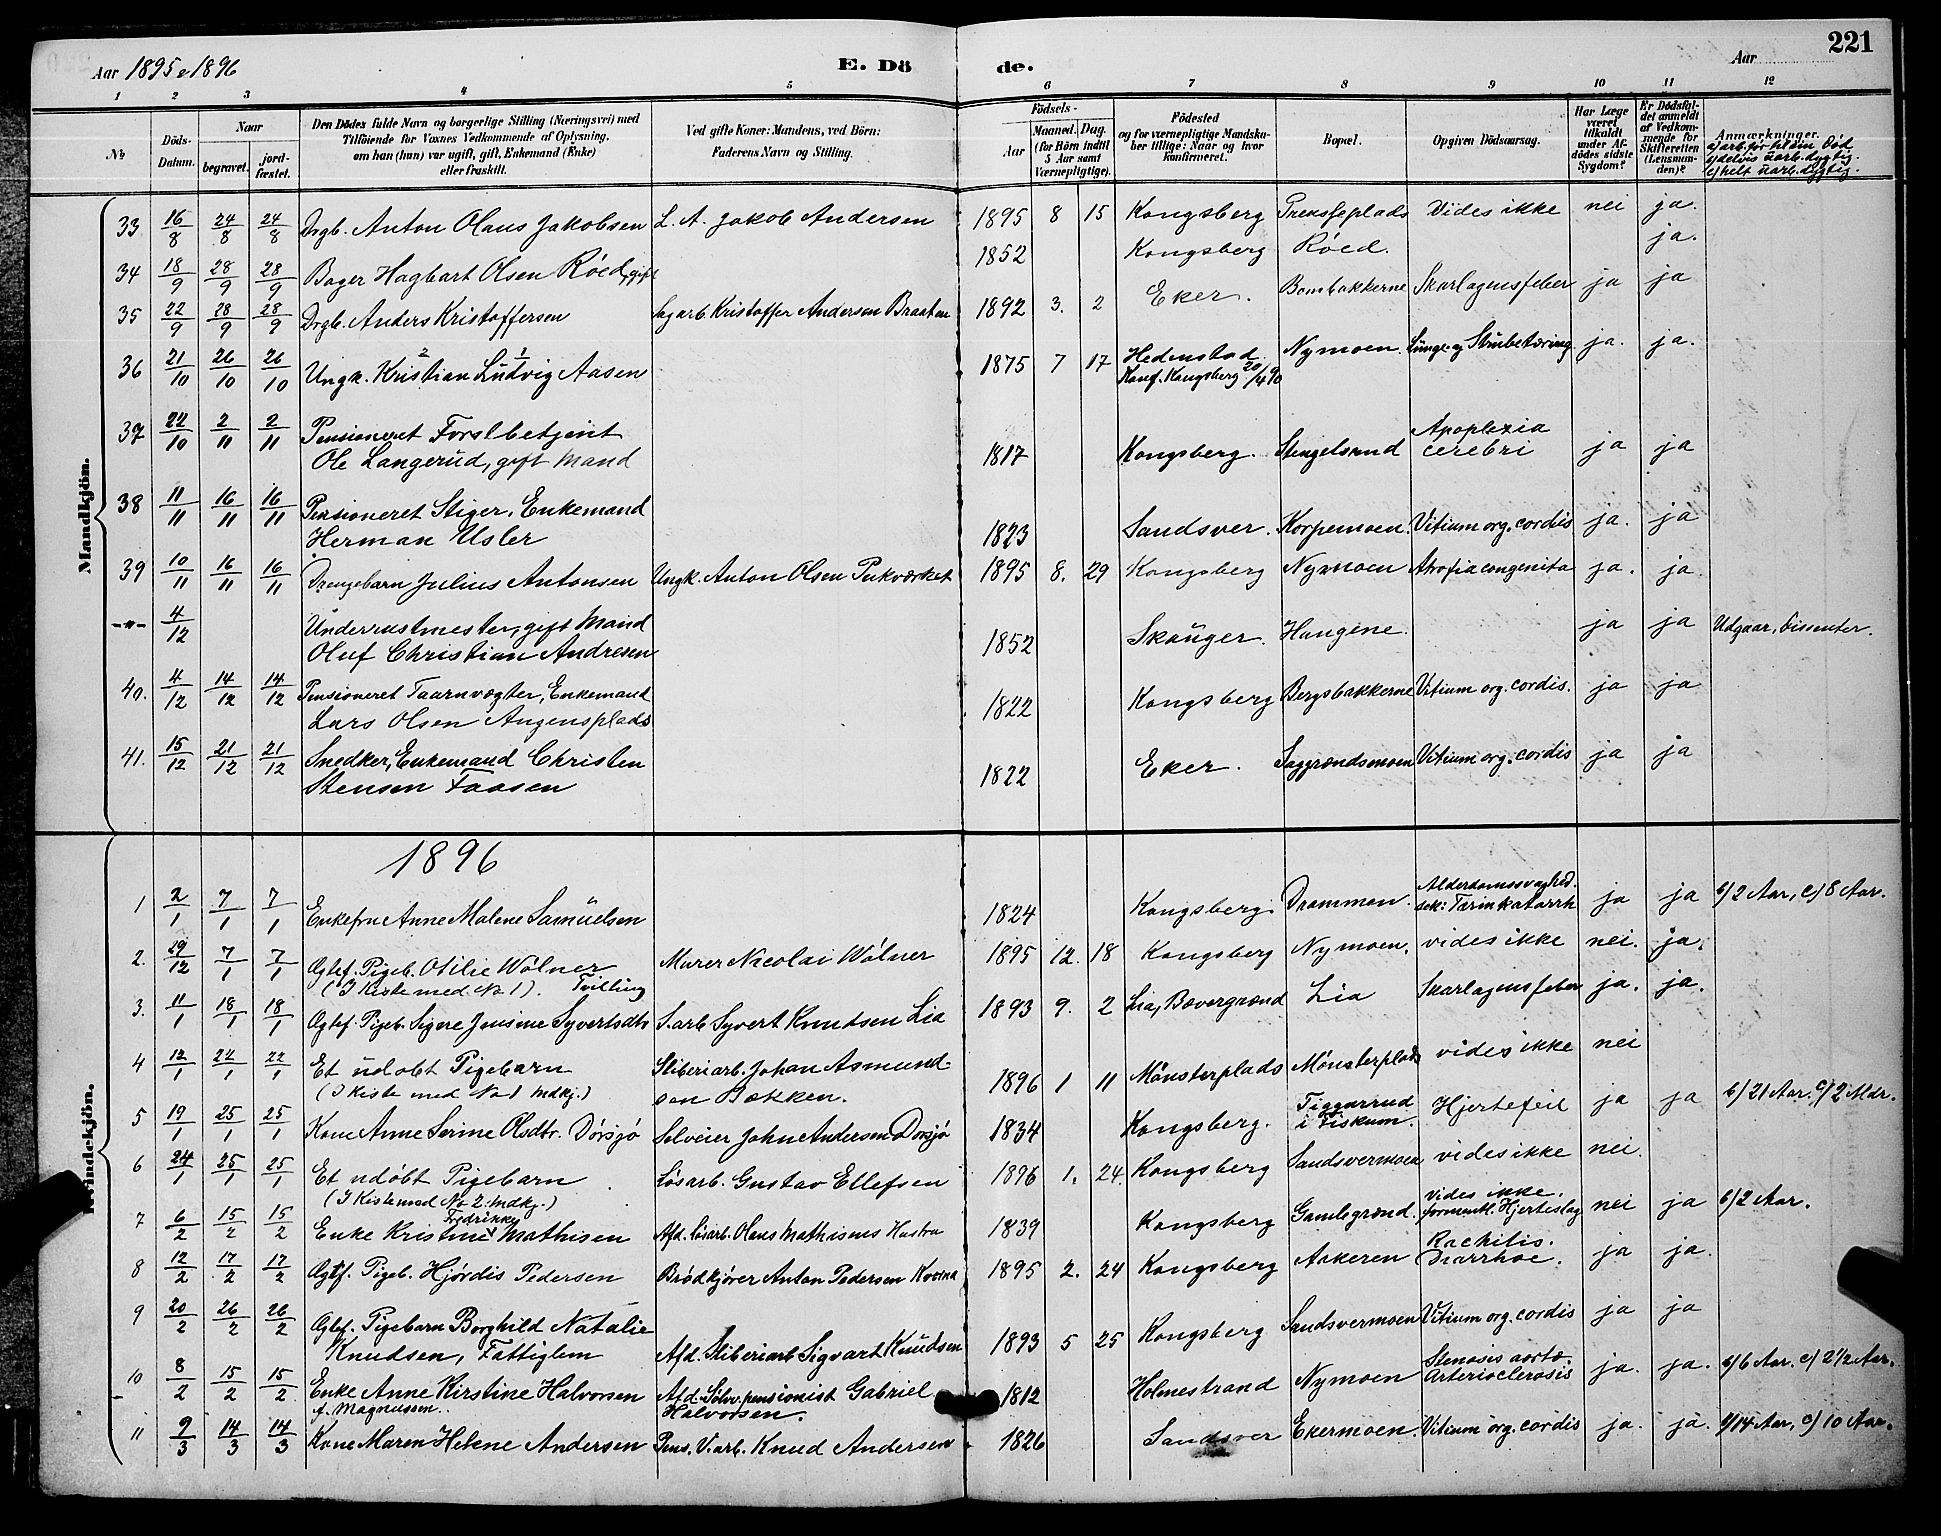 221
Aar 1895 & 1896 E. Dö de. Aar
1 2 3 4 5 6 7 8 9 10 11 12
№ Döds-Datum. Naar begravet. jordfæstet. Den Dödes fulde Navn og borgerlige Stilling (Næringsvei) med Tilföiende for Voxnes Vedkommende af Oplysning, om han (hun) var ugift, gift, Enkemand (Enke) eller fraskilt. Ved gifte Koner: Mandens, ved Börn: Faderens Navn og Stilling. Födsels- Aar Maaned. Dag. (for Börn indtil 5 Aar samt Værnepligtige). Födested og for værnepligtige Mandskaber tillige: Naar og hvor konfirmeret. Bopæl. Opgiven Dödsaarsag. Har Læge været tilkaldt under Afdödes sidste Sygdom? Er Dödsfaldet anmeldt af Vedkommende for Skifteretten (Lensmanden)? Anmærkninger.
Mandkjön.
33 16/8 24/8 24/8 Drgb. Anton Olaus Jakobsen L. A. Jakob Andersen 1895 8 15 Kongsberg Vides ikke nei ja.
34 18/9 28/9 28/9 Bager Hagbart Olsen Röed, gift 1852 Kongsberg Röed. ja.
35 22/9 28/9 28/9 Drgb. Anders Kristoffersen Sagarb. Kristoffer Andersen Braaten 1892 3. 2 Eker. Bombakkerne Skarlagensfeber ja ja
36 21/10 26/10 26/10 Ungk. Kristian Ludvig Aasen 1875 7 17 Hedenstad Nymoen. Lunge- og Strubetæring ja. ja.
Konf. Kongsberg 20/4 90
37 22/10 2/11 2/11 Pensioneret Forstbetjent
Ole Langerud, gift Mand 1817 Kongsberg. Stengelsrud Apoplexia cerebri ja ja
38 11/11 16/11 16/11 Pensioneret Stiger, Enkemand
Herman Usler 1823 Sandsver. Korpemoen Vitium org. cordis ja. ja
39 10/11 16/11 16/11 Drengebarn Julius Antonsen Ungk. Anton Olsen Pukværket 1895 8. 29 Kongsberg Nymoen Atrofia congenita ja. ja
-"- 4/12 Underrustmester, gift Mand
Oluf Christian Andresen 1852 Skauger. Haugene. ja ja Udgaar, Dissenter.
40. 4/12 14/12 14/12 Pensioneret Taarnvægter, Enkemand
Lars Olsen Angensplads 1822 Kongsberg Bergsbakkerne Vitium org. cordis. ja ja
41. 15/12 21/12 21/12 Snedker, Enkemand Christen
Stensen Faasen 1822 Eker. Saggrændsmoen Vitium org. cordis ja ja
1896
Kvindekjön.
1 2/1 7/1 7/1 Enkefru Anne Malene Samuelsen 1824 Kongsberg. Drammen. Alderdomssvaghed. sek: Tarmkatarrh ja ja b/2 Aar, c/8 Aar.
2. 29/12 7/1 7/1 Øgtef. Pigeb. Otilie Wölner Murer Nicolai Wölner 1895 12. 18 Kongsberg Nymoen. vides ikke nei. ja.
(I Kiste med No 1). Tvilling
3. 11/1 18/1 18/1 Ægtef. Pigeb. Sigere Jensine Syvertsdtr S.arb Syvert Knudsen Lia 1893 9. 2 Lia, Bævergrænd Lia Skarlagensfeber ja. ja.
4 12/1 22/1 22/1 Et udöbt Pigebarn Sliberiarb. Johan Asmund-
(I Kiste med No 1 Mdkj.) sen Bækken. 1896 1 11 Mönsterplads Mönsterplads vides ikke nei
5 19/1 25/1 25/1 Kone Anne Serine Olsdtr. Dörsjö Selveier John Andersen Dörsjö 1834 Kongsberg. Tiggerrud i Fiskum. Hjertefeil ja ja b/21 Aar. c/2 Mdr.
6 24/1 25/1 25/1 Et udöbt Pigebarn Lösarb. Gustav Ellefsen 1896 1. 24 Kongsberg Sandsvermoen vides ikke nei.
(I Kiste med No 2. Mdkj.)
7 6/2 15/2 15/2 Enke Kristine Fredrikke Mathisen Afd. Lösarb. Olaus Mathisens Hustru 1839 Kongsberg Gamlegrænd. vides ikke. formentl. Hjerteslag nei ja b/2 Aar.
8 12/2 17/2 17/2 Ægtf. Pigeb. Hjördis Pedersen Brödkjörer Anton Pedersen 1895 2. 24 Kongsberg Aakeren Rachitis. Diarrhoe. ja ja.
9 20/2 26/2 26/2 Ægtef. Pigebarn Borghild Natalie
Knudsen, Fattiglem Afd. Sliberiarb Sigvart Knudsen 1893 5 25 Kongsberg Sandsvermoen Vitium org. cordis ja ja
10 8/2 15/2 15/2 Enke Anne Kirstine Halvorsen Afd. Sölvv. pensionist Gabriel 1812 Holmestrand Nymoen Stenosis aortæ. Arterioclerosis ja. ja. b/6 Aar, c/2½ Aar.
f. Magnussen.. Halvorsen.
11 9/3 14/3 14/3 Kone Maren Helene Andersen Pens. V.arb. Knud Andersen 1826 Sandsver Ekermoen. Vitium org. cordis ja. ja. b/14 Aar, c/10 Aar.